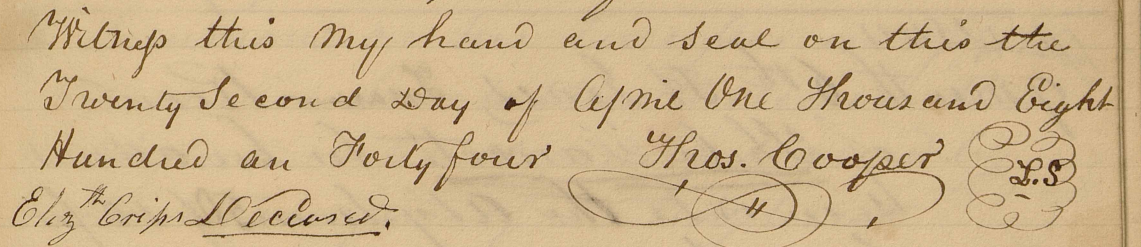 Witness this my hand and seal on this the
Twenty Second Day of April One Thousand Eight
Hundred an Forty four Thos. Cooper L.S
Elizth Crips Deceased.